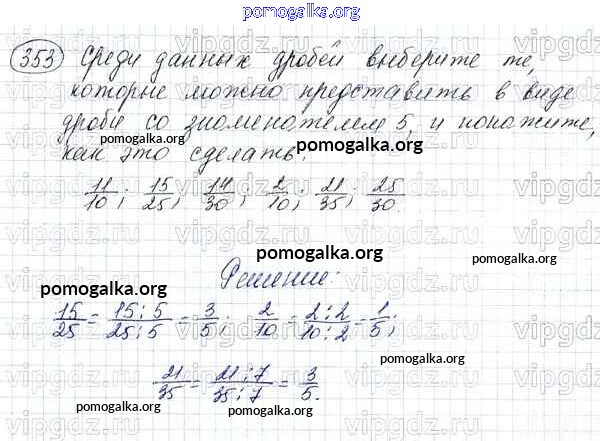 pomogalka.org
353 Среди данных дробей выберите те,
которые можно представить в виде
дроби со знаменателем 5, и покажите,
как это сделать.
pomogalka.org
11/10; 15/25; 14/30; 2/10; 21/35; 25/30.
pomogalka.org
Решение:
pomogalka.org
15/25 = 15:5/25:5 = 3/5; 2/10 = 2:2/10:2 = 1/5;
pomogalka.org
21/35 = 21:7/35:7 = 3/5.
pomogalka.org pomogalka.org